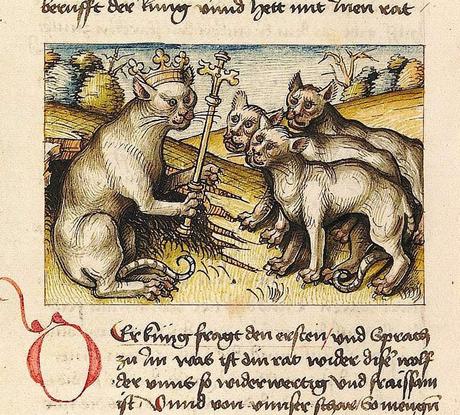 berufft der kunig vnnd Hett mit Inen rat
DEr kunig fragt den ersten vnd Sprach
zu Im was ist din rat wider dise wolf
der vnns so widerwertig vnd fraissam
ist Vnnd von vnnser schar So